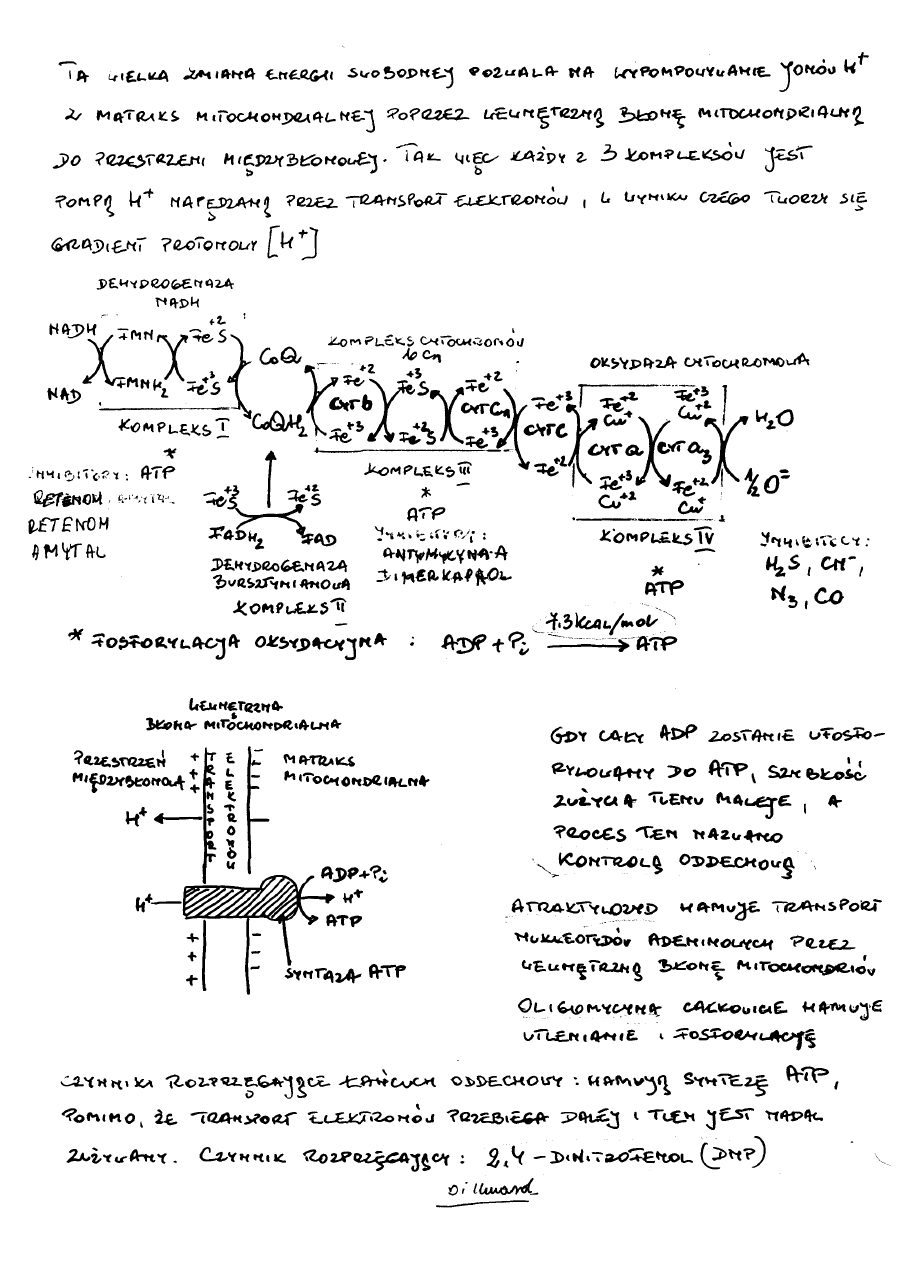 TA WIELKA ZMIANA ENERGII SWOBODNEJ POZWALA NA WYPOMPOWYWANIE JONÓW H⁺
Z MATRIKS MITOCHONDRIALNEJ POPRZEZ WEWNĘTRZNĄ BŁONĘ MITOCHONDRIALNĄ
DO PRZESTRZENI MIĘDZYBŁONOWEJ. TAK WIĘC KAŻDY Z 3 KOMPLEKSÓW JEST
POMPĄ H⁺ NAPĘDZANĄ PRZEZ TRANSPORT ELEKTRONÓW, W WYNIKU CZEGO TWORZY SIĘ
GRADIENT PROTONOWY [H⁺]
DEHYDROGENAZA
NADH
NADH FMN Fe⁺²S
NAD FMNH₂ Fe⁺³S
KOMPLEKS I
*
ATP
INHIBITORY:
RETENON
RETENON
AMYTAL
CoQ
CoQH₂
Fe⁺³S Fe⁺²S
FADH₂ FAD
DEHYDROGENAZA
BURSZTYNIANOWA
KOMPLEKS II
KOMPLEKS CYTOCHROMÓW
b C₁
Fe⁺² Fe⁺³S Fe⁺²
CYT b CYT C₁
Fe⁺³ Fe⁺²S Fe⁺³
KOMPLEKS III
*
ATP
INHIBITORY:
ANTYMYCYNA A
DIMERKAPROL
Fe⁺³
CYT C
Fe⁺²
OKSYDAZA CYTOCHROMOWA
Fe⁺² Cu⁺ Fe⁺³ Cu⁺²
CYT a CYT a₃
Fe⁺³ Cu⁺² Fe⁺² Cu⁺
KOMPLEKS IV
*
ATP
H₂O
1/2 O⁼
INHIBITORY:
H₂S, CN⁻,
N₃, CO
* FOSFORYLACJA OKSYDACYJNA : ADP + Pi → ATP
7.3 KCAL/mol
WEWNĘTRZNA
BŁONA MITOCHONDRIALNA
PRZESTRZEŃ
MIĘDZYBŁONOWA
TRANSPORT
ELEKTRONÓW
MATRIKS
MITOCHONDRIALNA
+ + +
− − − −
H⁺
H⁺
ADP + Pi
H⁺
ATP
+ + +
− − −
SYNTAZA ATP
GDY CAŁY ADP ZOSTANIE UFOSFO-
RYLOWANY DO ATP, SZYBKOŚĆ
ZUŻYCIA TLENU MALEJE, A
PROCES TEN NAZWANO
KONTROLĄ ODDECHOWĄ
ATRAKTYLOZYD HAMUJE TRANSPORT
NUKLEOTYDÓW ADENINOWYCH PRZEZ
WEWNĘTRZNĄ BŁONĘ MITOCHONDRIÓW
OLIGOMYCYNA CAŁKOWICIE HAMUJE
UTLENIANIE I FOSFORYLACJĘ
CZYNNIKI ROZPRZĘGAJĄCE ŁAŃCUCH ODDECHOWY: HAMUJĄ SYNTEZĘ ATP,
POMIMO, ŻE TRANSPORT ELEKTRONÓW PRZEBIEGA DALEJ I TLEN JEST NADAL
ZUŻYWANY. CZYNNIK ROZPRZĘGAJĄCY: 2,4-DINITROFENOL (DNP)